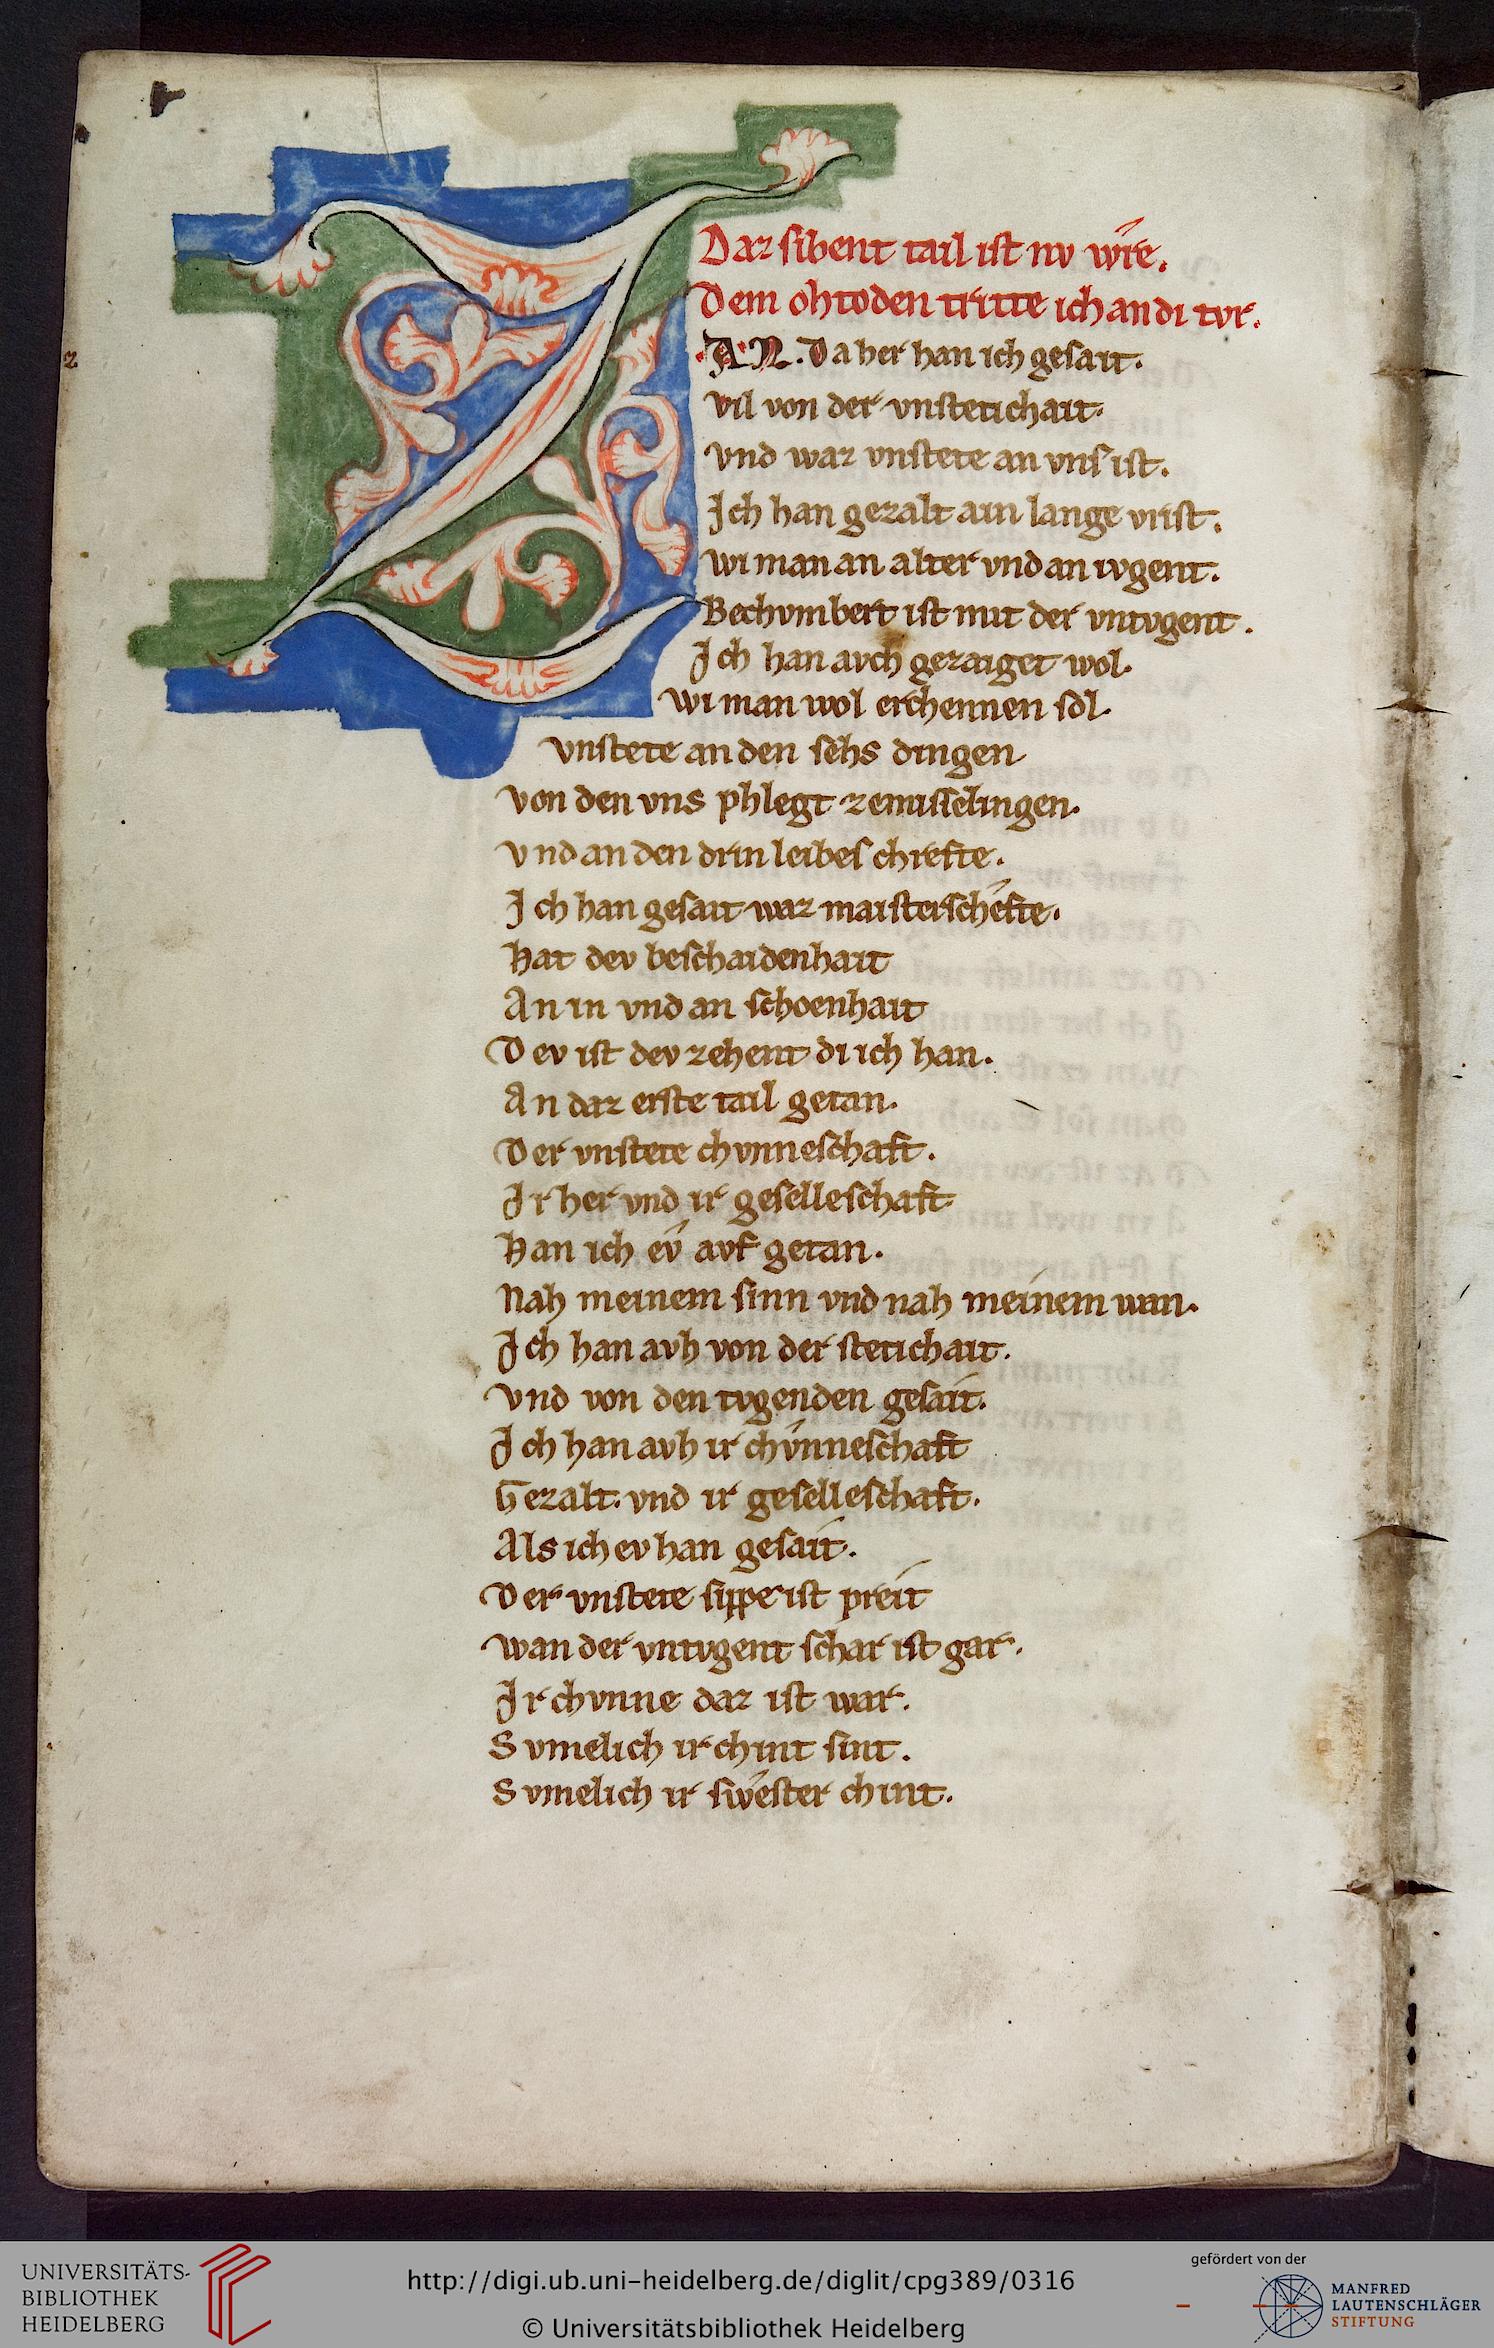 Daz sibent tail ist nv wie.
Dem ohtoden tritte ich an di tvr.
Z AN. Da her han ich gesait.
vil von der vnstetichait.
vnd waz vnstete an vns ist.
Ich han gezalt ain lange vrist.
wi man an alter vnd an ivgent.
Bechvmbert ist mit der vntvgent.
Ich han avch gezaiget wol.
wi man wol erchennen sol.
vnstete an den sehs dingen
von den vns phlegt ze misselingen.
vnd an den drin leibes chrefte.
Ich han gesait waz maisterschefte.
Hat dev beschaidenhait
An in vnd an schoenhait
Dev ist dev zehent di ich han.
An daz erste tail getan.
Der vnstete chvnneschaft.
Ir her vnd ir geselleschaft
Han ich ev avf getan.
Nah meinem sinn vnd nah meinem wan.
Ich han avh von der stetichait.
vnd von den tvgenden gesait.
Ich han avh ir chvnneschaft
Gezalt. vnd ir geselleschaft.
Als ich ev han gesait.
Der vnstete sippe ist preit
wan der vntvgent schar ist gar.
Ir chvnne daz ist war.
Svmelich ir chint sint.
Svmelich ir swester chint.
UNIVERSITÄTS-
BIBLIOTHEK
HEIDELBERG
http://digi.ub.uni-heidelberg.de/diglit/cpg389/0316
© Universitätsbibliothek Heidelberg
gefördert von der
MANFRED
LAUTENSCHLÄGER
STIFTUNG